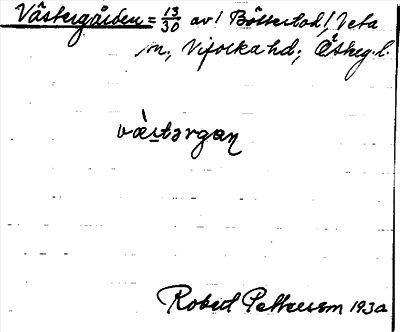 Västergården = 13/30 av / Böttestad /, Veta
sn, Vifolka hd., Östergl.
væ̀stərgaṇ
Robert Pettersson 193a